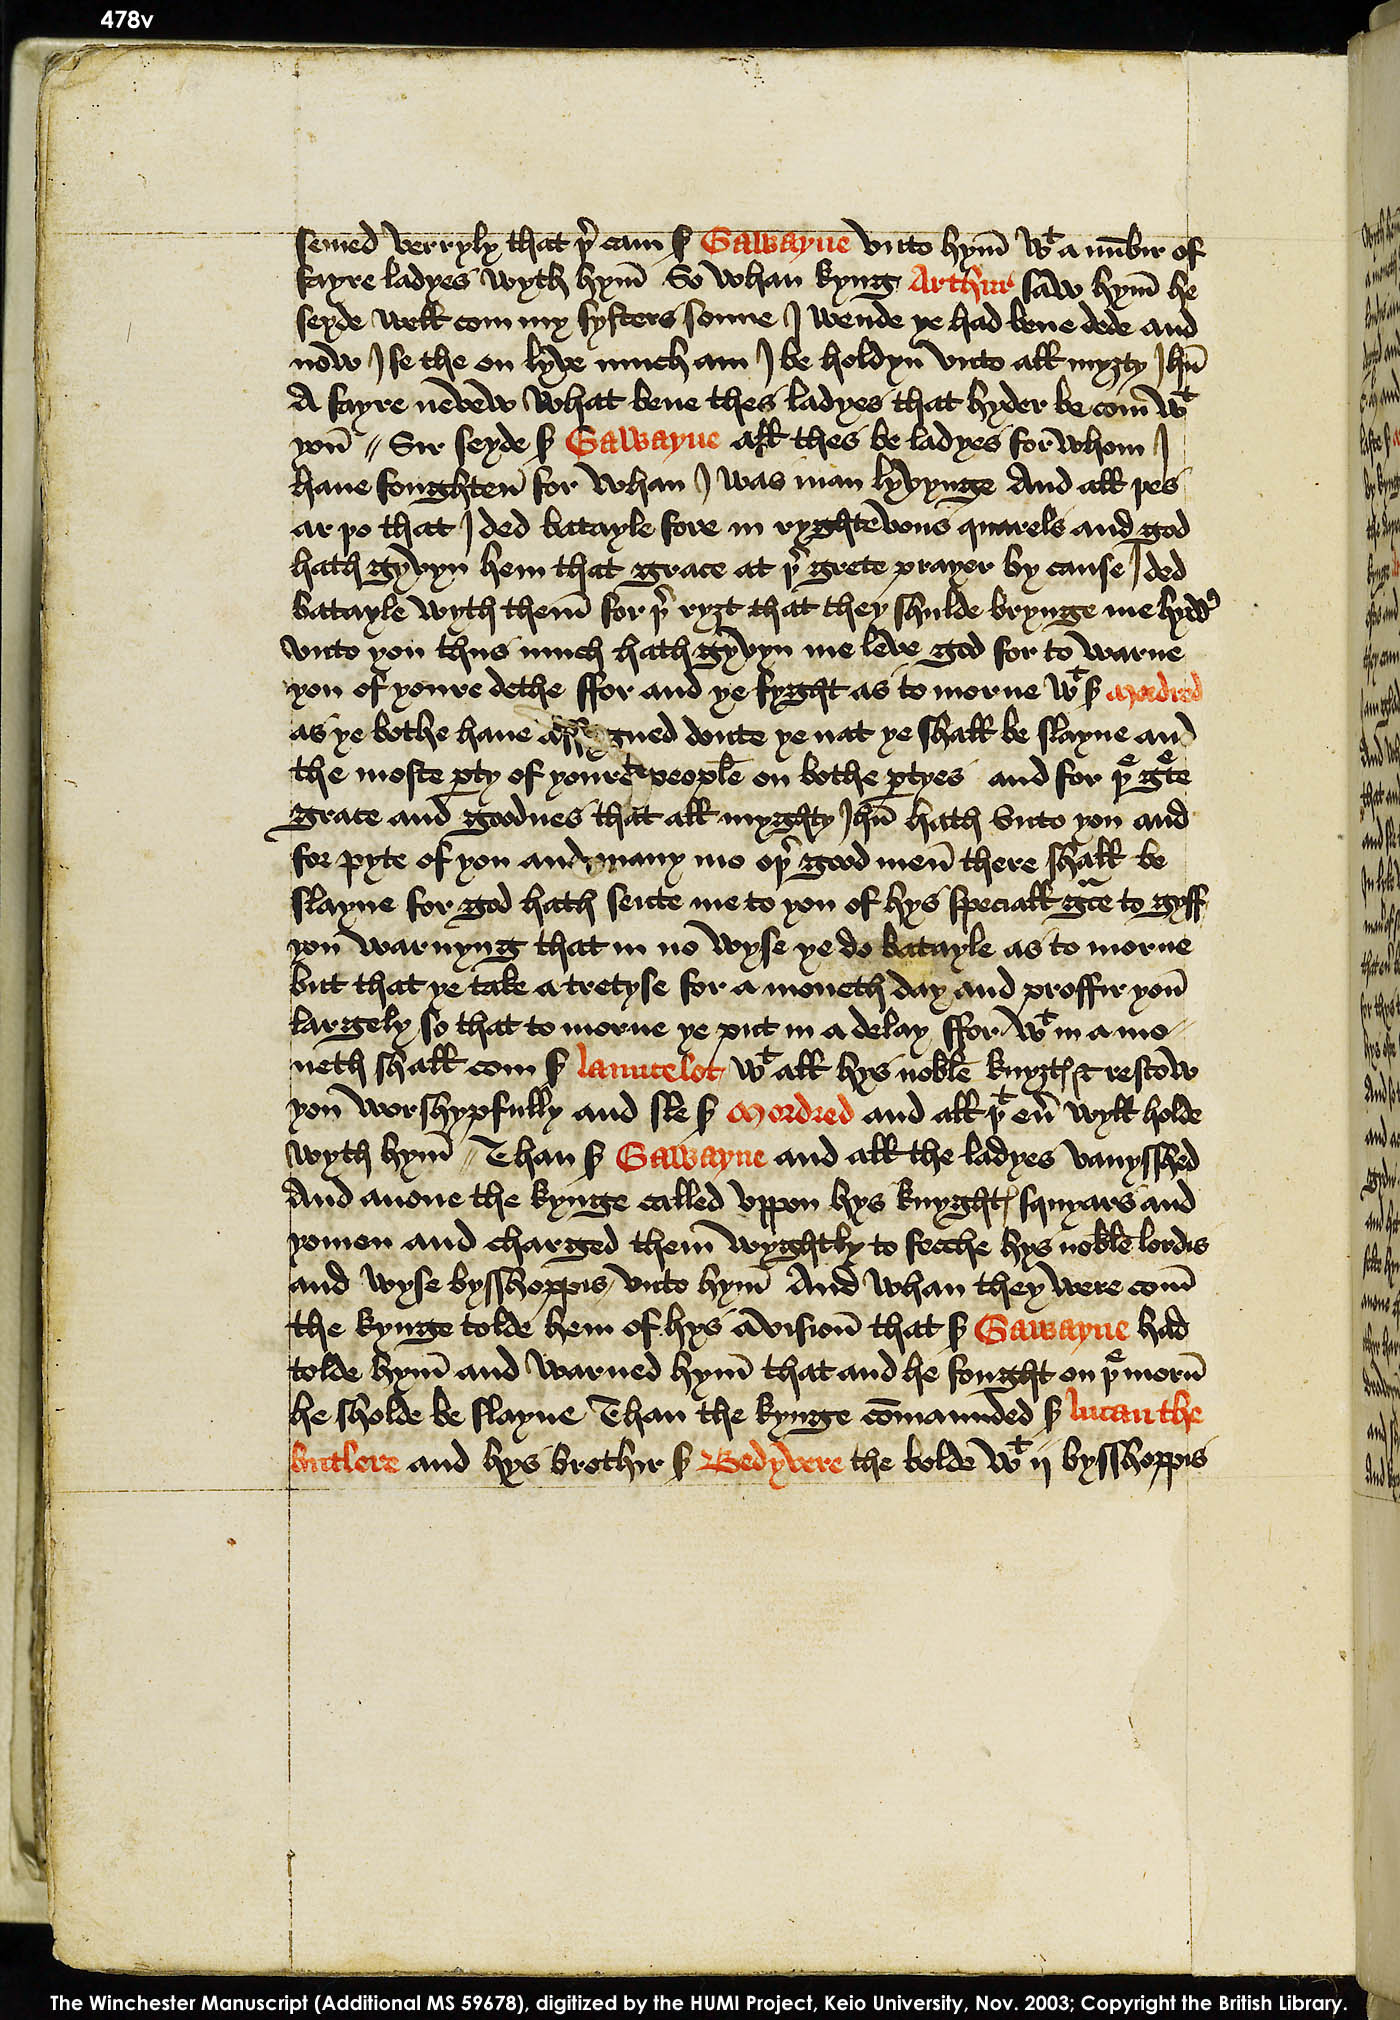 478v
semed verryly that þr cam sr Gawayne vnto hym̅ wt a nu̅bir of
fayre ladyes wyth hym̅ So whan kyng Arthur saw hym̅ he
seyde well com my systers sonne I wende ye had bene dede and
now I se the on lyve much am I be holdyn vnto all myȝty Jhu̅
A fayre nevew what bene thes ladyes that hyder be com̅ wt
you̅ // Sir seyde sr Gawayne all thes be ladyes for whom I
haue foughten̅ for whan I was man lyvynge And all þes
ar þo that I ded batayle fore in ryghtevous quarels and god
hath gyvyn hem that grace at þr grete prayer by cause I ded
batayle wyth them̅ for þr ryȝt that they shulde brynge me hyddr
vnto you thus much hath gyvyn me leve god for to warne
you of youre dethe ffor and ye fyght as to morne wt sr Mordred
as ye bothe haue assygned doute ye nat ye shall be slayne and
the moste pty of youre people on bothe ptyes and for þe gete
grace and goodnes that all myghty Jhu̅ hath vnto you and
for pyte of you and many mo oþr good men̅ there shall be
slayne for god hath sente me to you of hys speciall gce to gyff
you warnyng that in no wyse ye do batayle as to morne
but that ye take a tretyse for a moneth day and proffir you̅
largely so that to morne ye put in a delay ffor wt in a mo//
neth shall com sr launcelot wt all hys noble knyȝtꝭ & rescow
you worshypfully and sle sr Mordred and all þt eu̅ wyll holde
wyth hym̅ // Than sr Gawayne and all the ladyes vanysshed
And anone the kynge called vppon hys knyghtꝭ squyars and
yomen and charged them̅ wyghtly to fecche hys noble lordis
and wyse bysshoppis vnto hym̅ And whan they were com̅
the kynge tolde hem of hys avision̅ that sr Gawayne had
tolde hym̅ and warned hym̅ that and he fought on þe morn̅
he sholde be slayne Than the kynge co̅maunded sr lucan the
butlere and hys brothir sr Bedyvere the bolde wt ij bysshoppis
The Winchester Manuscript (Additional MS 59678), digitized by the HUMI Project, Keio University, Nov. 2003; Copyright the British Library.